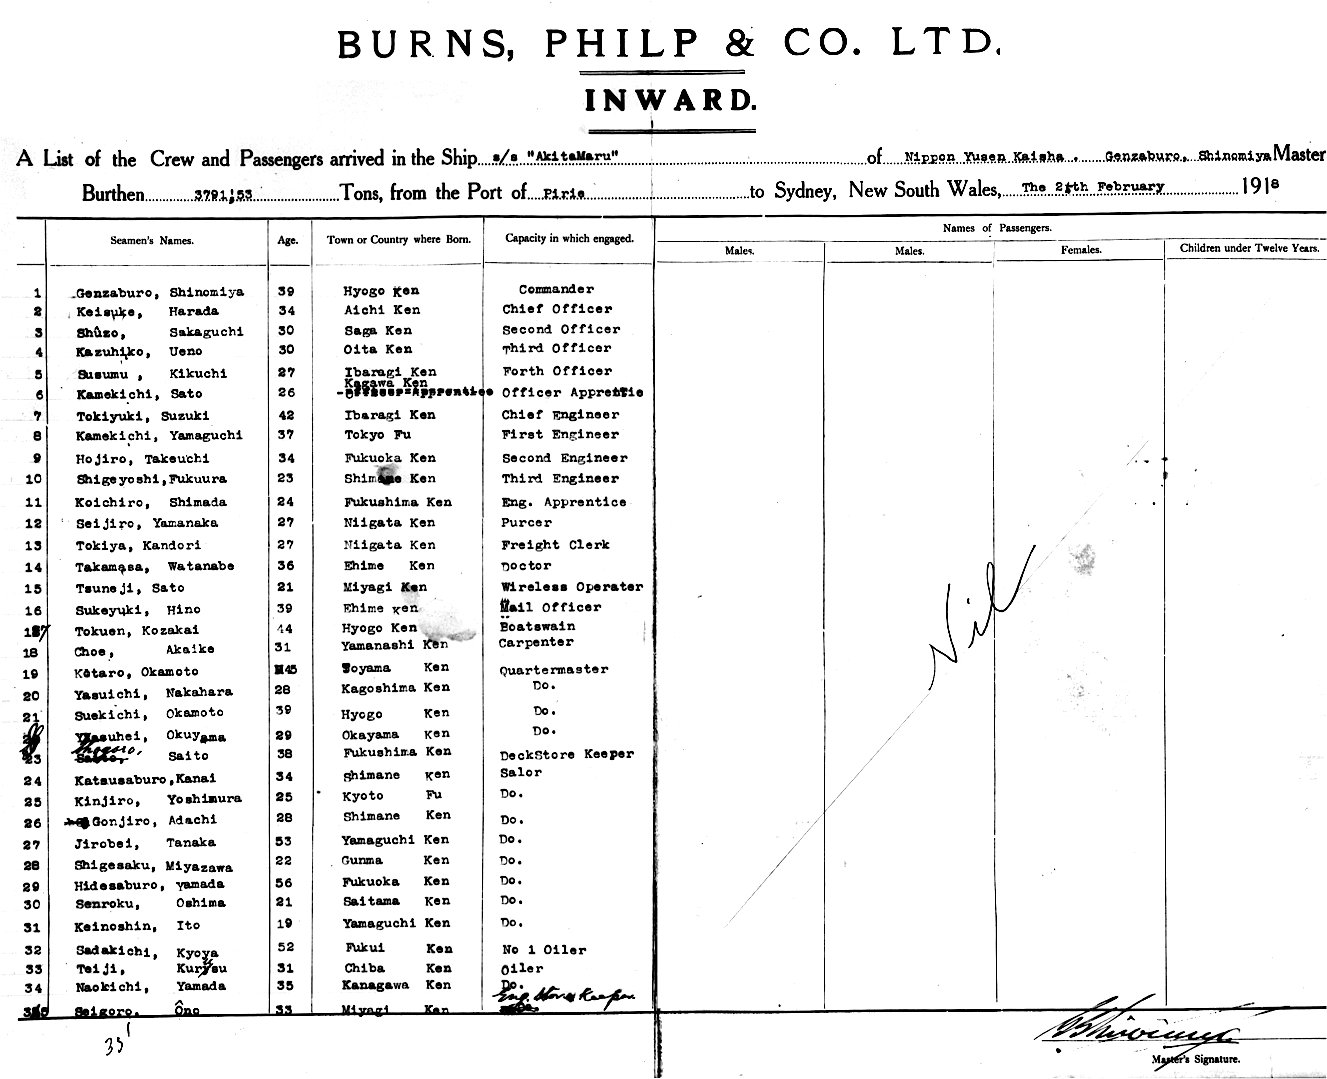 BURNS, PHILP & CO. LTD.
INWARD.
A List of the Crew and Passengers arrived in the Ship s/s "AkitaMaru" of Nippon Yusen Kaisha. Genzaburo, Shinomiya Master
Burthen 3791;53 Tons, from the Port of Pirie to Sydney, New South Wales, The 24th February 1918
Seamen's Names. Age. Town or Country where Born. Capacity in which engaged. Names of Passengers.
Males. Males. Females. Children under Twelve Years.
1 Genzaburo, Shinomiya 39 Hyogo Ken Commander
2 Keisuke, Harada 34 Aichi Ken Chief Officer
3 Shûzo, Sakaguchi 30 Saga Ken Second Officer
4 Kazuhiko, Ueno 30 Oita Ken Third Officer
5 Susumu, Kikuchi 27 Ibaragi Ken Forth Officer
6 Kamekichi, Sato 26 Kagawa Ken Officer Apprentice Officer Apprentie
7 Tokiyuki, Suzuki 42 Ibaragi Ken Chief Engineer
8 Kamekichi, Yamaguchi 37 Tokyo Fu First Engineer
9 Hojiro, Takeuchi 34 Fukuoka Ken Second Engineer
10 Shigeyoshi, Fukuura 23 Shimane Ken Third Engineer
11 Koichiro, Shimada 24 Fukushima Ken Eng. Apprentice
12 Seijiro, Yamanaka 27 Niigata Ken Purcer
13 Tokiya, Kandori 27 Niigata Ken Freight Clerk
14 Takamasa, Watanabe 36 Ehime Ken Doctor
15 Tsuneji, Sato 21 Miyagi Ken Wireless Operater
16 Sukeyuki, Hino 39 Ehime Ken Mail Officer
17 Tokuen, Kozakai 44 Hyogo Ken Boatswain
18 Choe, Akaike 31 Yamanashi Ken Carpenter
19 Kôtaro, Okamoto 45 Toyama Ken Quartermaster
20 Yasuichi, Nakahara 28 Kagoshima Ken Do.
21 Suekichi, Okamoto 39 Hyogo Ken Do.
Yasuhei, Okuyama 29 Okayama Ken Do.
23 Saito 38 Fukushima Ken DeckStore Keeper
24 Katsusaburo, Kanai 34 Shimane Ken Salor
25 Kinjiro, Yoshimura 25 Kyoto Fu Do.
26 Gonjiro, Adachi 28 Shimane Ken Do.
27 Jirobei, Tanaka 53 Yamaguchi Ken Do.
28 Shigesaku, Miyazawa 22 Gunma Ken Do.
29 Hidesaburo, Yamada 56 Fukuoka Ken Do.
30 Senroku, Oshima 21 Saitama Ken Do.
31 Keinoshin, Ito 19 Yamaguchi Ken Do.
32 Sadakichi, Kyoya 52 Fukui Ken No 1 Oiler
33 Teiji, Kuryu 31 Chiba Ken Oiler
34 Naokichi, Yamada 35 Kanagawa Ken Do.
35 Seigoro, Ôno 33 Miyagi Ken Eng. Store Keeper
Nil
Master's Signature.